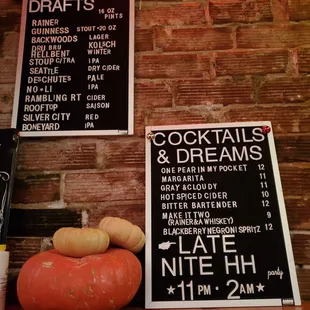 DRAFTS 16 OZ PINTS
RAINER
GUINNESS STOUT • 20 OZ
BACKWOODS LAGER
DRU BRU KOLSCH
HELLBENT WINTER
STOUP C/TRA IPA
SEATTLE DRY CIDER
DESCHUTES PALE
NO-LI IPA
RAMBLING RT CIDER
ROOFTOP SAISON
SILVER CITY RED
BONEYARD IPA
COCKTAILS
& DREAMS
ONE PEAR IN MY POCKET 12
MARGARITA 11
GRAY & CLOUDY 11
HOT SPICED CIDER 10
BITTER BARTENDER 12
MAKE IT TWO 9
(RAINER & A WHISKEY)
BLACKBERRY NEGRONI SPRITZ 12
LATE
NITE HH party
11 PM - 2 AM